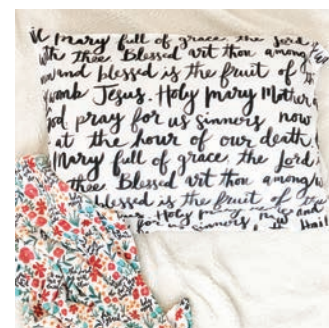 mary full of grace the lord
with thee Blessed art thou among
and blessed is the fruit of
womb Jesus. Holy mary Mother
God pray for us sinners now
at the hour of our death
Mary full of grace the Lord
thee Blessed art thou among
blessed is the fruit of
Holy mary
for us sinners, Hail